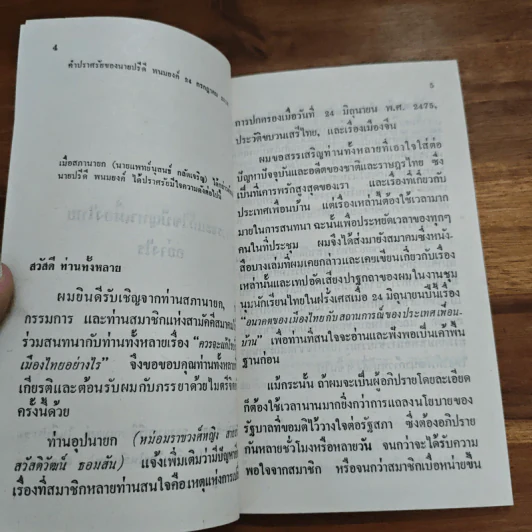 4
คำปราศรัยของนายปรีดี พนมยงค์ 24 กรกฎาคม
เมื่อสภานายก (นายแพทย์นุธนธ์ กลัดเจริญ)
นายปรีดี พนมยงค์ ได้ปราศรัยมีใจความดังต่อไปนี้
สวัสดี ท่านทั้งหลาย
ผมยินดีรับเชิญจากท่านสภานายก,
กรรมการ และท่านสมาชิกแห่งสามัคคีสมาคม
ร่วมสนทนากับท่านทั้งหลายเรื่อง "ควรจะแก้ไข
เมืองไทยอย่างไร" จึงขอขอบคุณท่านทั้ง
เกียรติและต้อนรับผมกับภรรยาด้วยไมตรีจิต
ครั้งนี้ด้วย
ท่านอุปนายก (หม่อมราชวงศ์หญิง
สวัสดิวัฒน์ ธอมสัน) แจ้งเพิ่มเติมว่ามีปัญหา
เรื่องที่สมาชิกหลายท่านสนใจคือเหตุแห่งการ
5
การปกครองเมื่อวันที่ 24 มิถุนายน พ.ศ. 2475,
ประวัติขบวนเสรีไทย, และเรื่องเมืองจีน
ผมขอสรรเสริญท่านทั้งหลายที่เอาใจใส่ต่อ
ปัญหาปัจจุบันและอดีตของชาติและราษฎรไทย ซึ่ง
เป็นที่การพรักสูงสุดของเรา และเรื่องที่เกี่ยวกับ
ประเทศเพื่อนบ้าน แต่เรื่องเหล่านี้ต้องใช้เวลามาก
มายในการสนทนา ฉะนั้นเพื่อประหยัดเวลาของทุกๆ
คนในที่ประชุม ผมจึงได้ส่งมายังสมาคมซึ่งหนัง-
สือบางเล่มที่ผมเคยกล่าวและเคยเขียนเกี่ยวกับเรื่อง
เหล่านั้นและเทปอัดเสียงปาฐกถาของผมในงานชุม
นุมนักเรียนไทยในฝรั่งเศสเมื่อ 24 มิถุนายนปีนี้เรื่อง
"อนาคตของเมืองไทยกับสถานการณ์ของประเทศเพื่อน-
บ้าน" เพื่อท่านที่สนใจจะอ่านและฟังพอเป็นเค้าพื้น
ฐานก่อน
แม้กระนั้น ถ้าผมจะเป็นผู้อภิปรายโดยละเอียด
ก็ต้องใช้เวลานานมากยิ่งกว่าการแถลงนโยบายของ
รัฐบาลที่ขอมติไว้วางใจต่อรัฐสภา ซึ่งต้องอภิปราย
กันหลายชั่วโมงหรือหลายวัน จนกว่าจะได้รับความ
พอใจจากสมาชิก หรือจนกว่าสมาชิกเบื่อหน่ายขึ้น